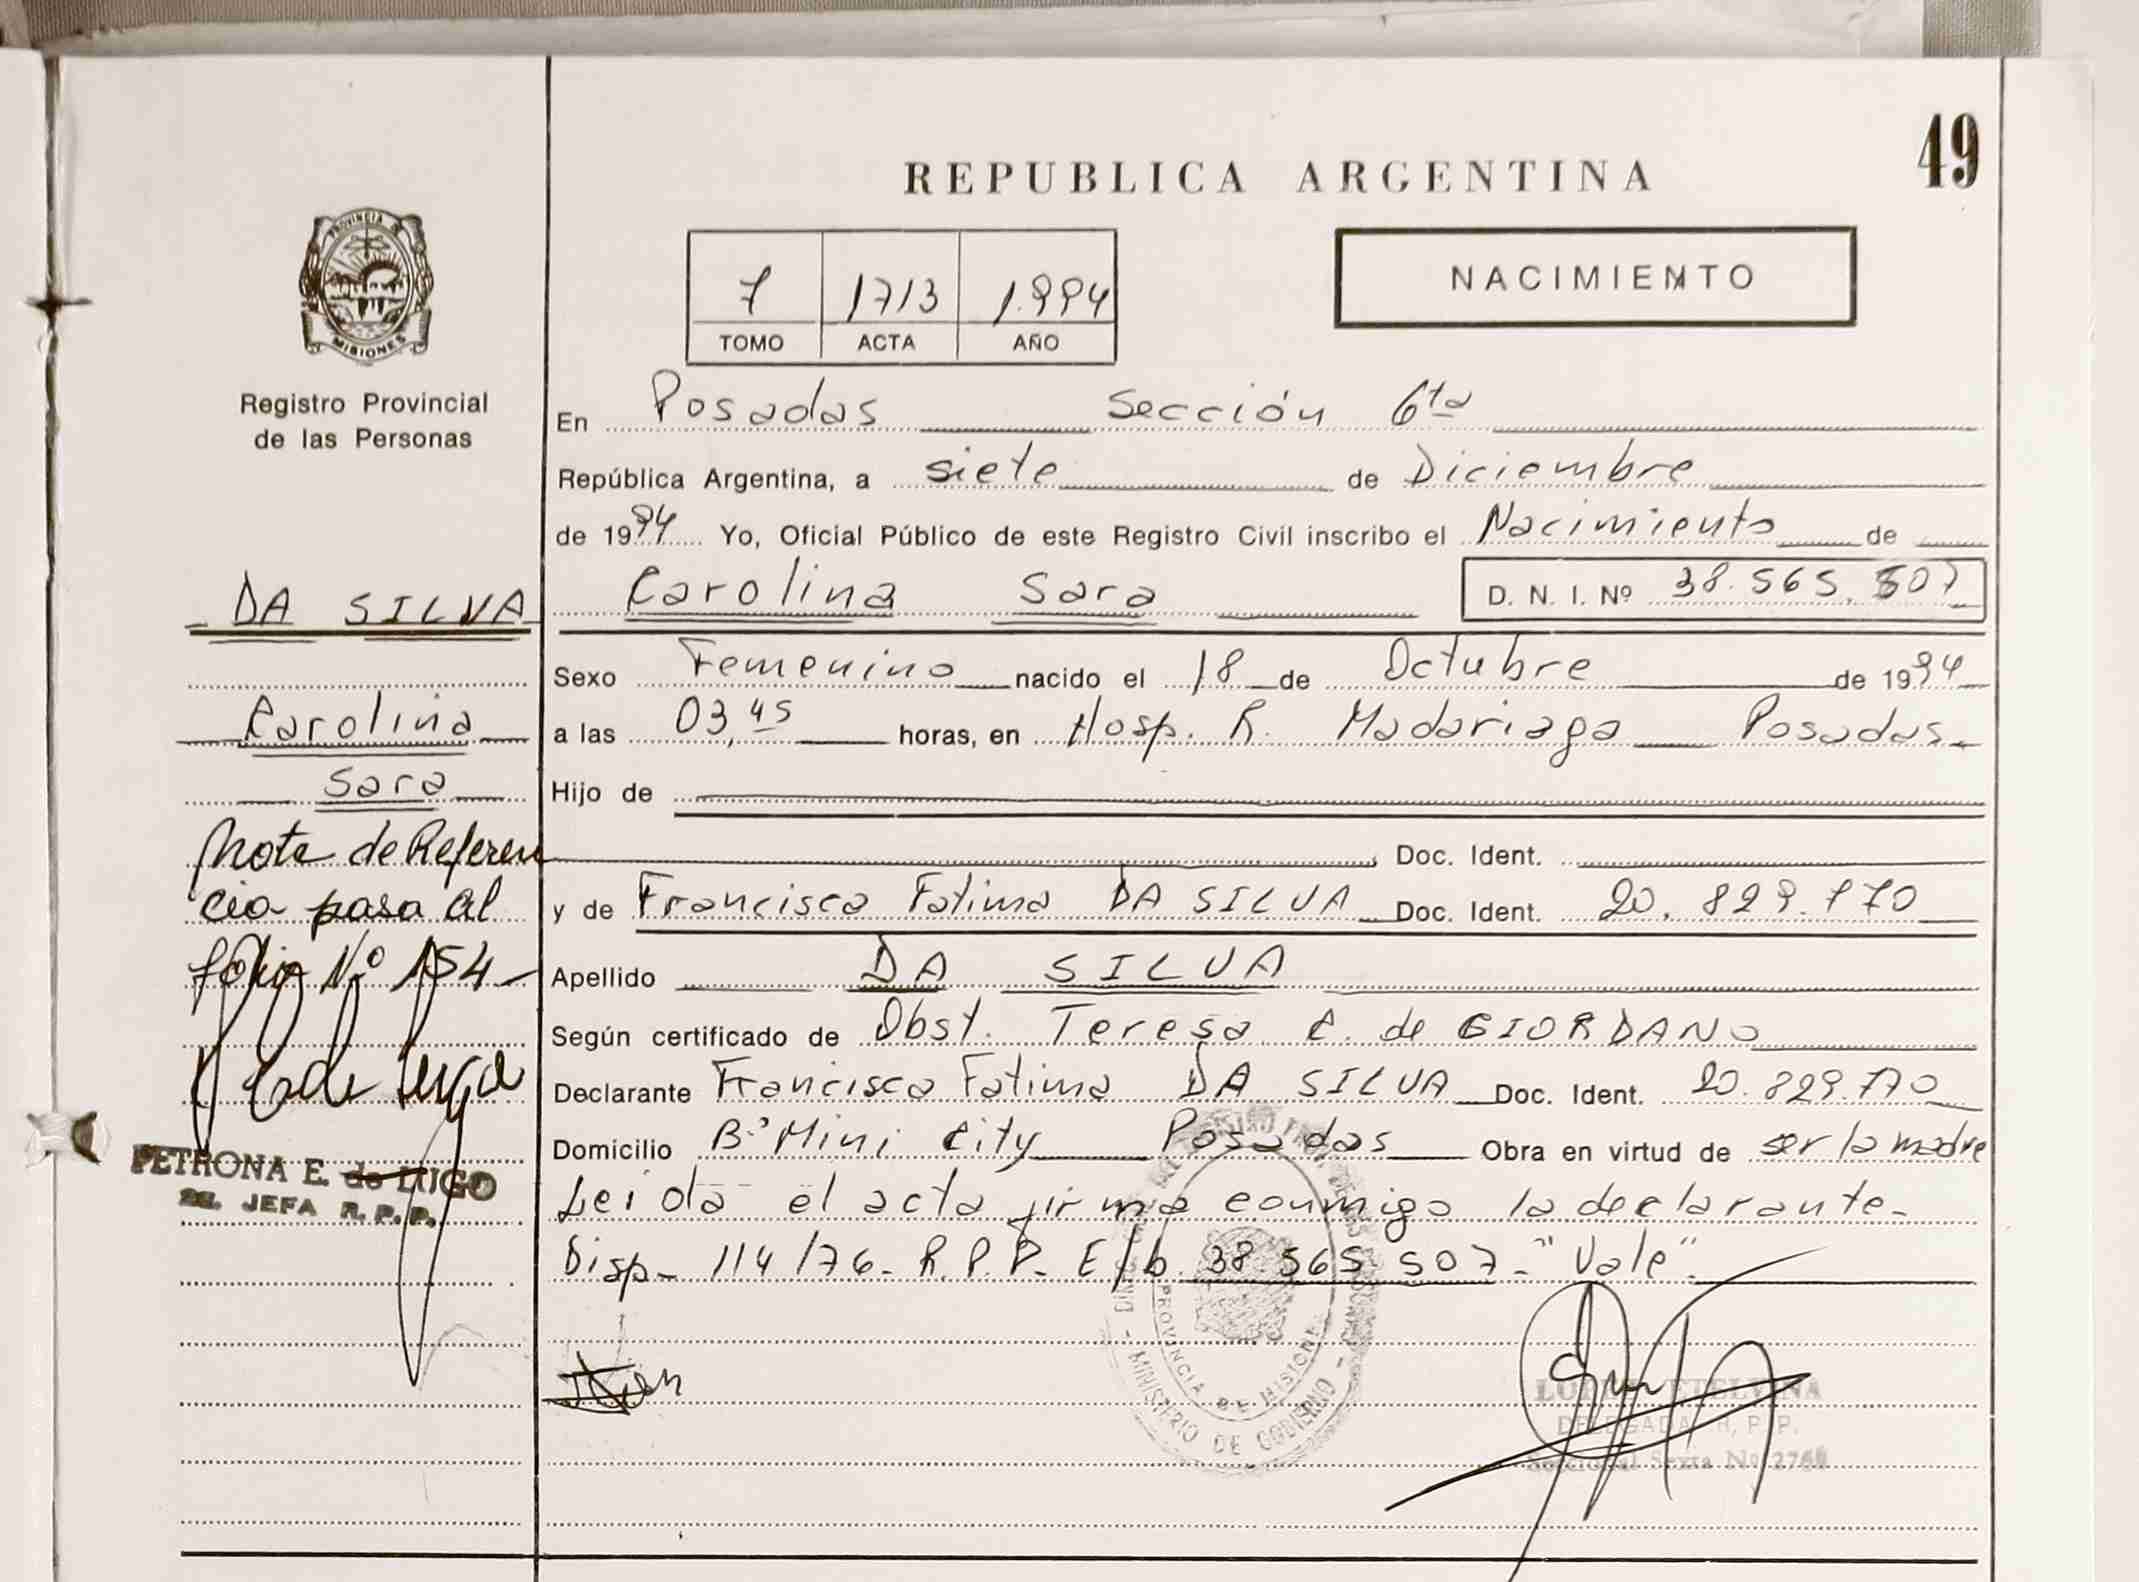 49
REPUBLICA ARGENTINA
NACIMIENTO
7 1713 1.994
TOMO ACTA AÑO
PROVINCIA DE
MISIONES
Registro Provincial
de las Personas
En Posadas Sección 6ta
República Argentina, a siete de Diciembre
de 1994 Yo, Oficial Público de este Registro Civil inscribo el Nacimiento de
Carolina Sara D. N. I. Nº 38.565.507
Sexo Femenino nacido el 18 de Octubre de 1994
a las 03,45 horas, en Hosp. R. Madariaga Posadas
Hijo de
Doc. Ident.
y de Francisca Fatima DA SILVA Doc. Ident. 20.829.770
Apellido DA SILVA
Según certificado de Obst. Teresa C. de GIORDANO
Declarante Francisca Fatima DA SILVA Doc. Ident. 20.829.770
Domicilio Bº Mini City Posadas Obra en virtud de ser la madre
Leida el acta firma conmigo la declarante-
Disp- 114/76- R.P.P- E/b 38.565.507- "Vale"
DA SILVA
Carolina
Sara
Nota de Referen
cia pasa al
folio Nº 154-
PETRONA E. de LUGO
JEFA R.P.P.
PROVINCIA DE MISIONES
MINISTERIO DE GOBIERNO
LOPEZ ETELVINA
DELEGADA R.P.P.
Seccional Sexta Nº 2768